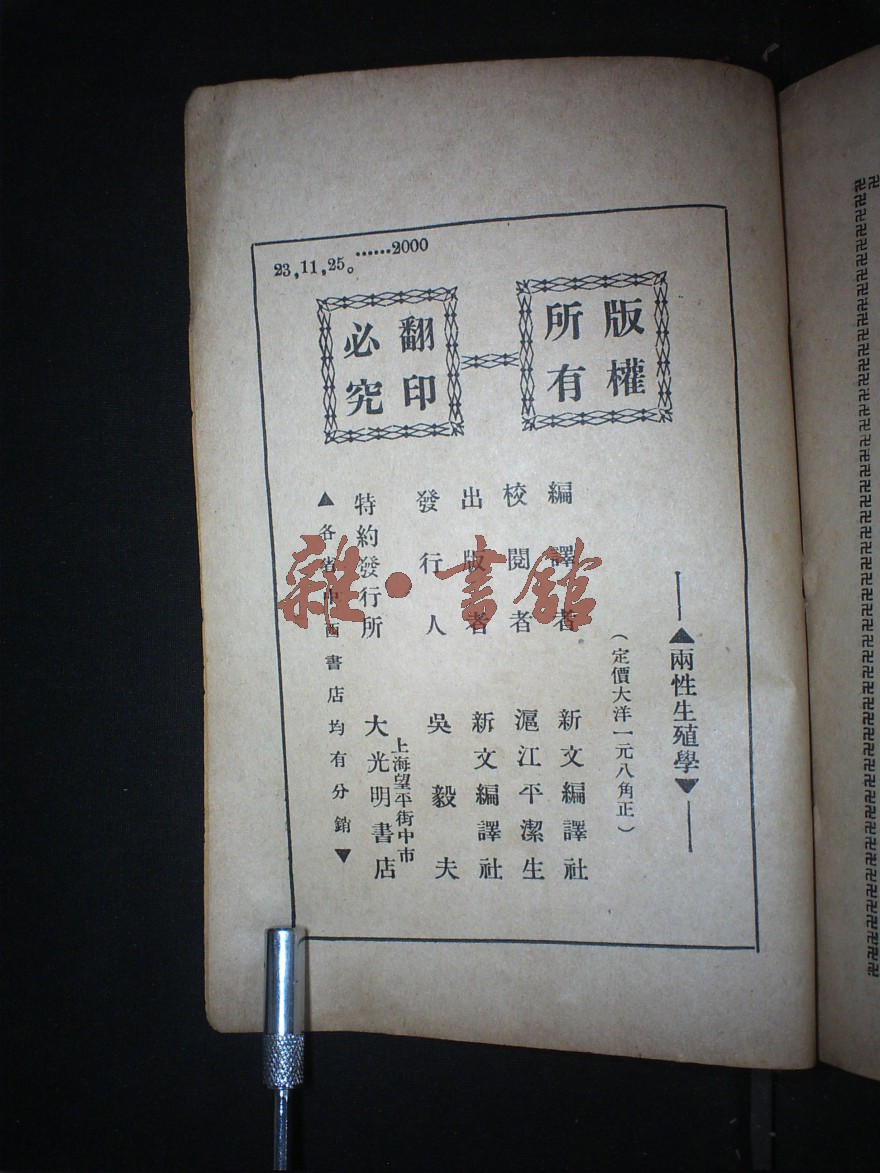 23,11,25。……2000
版權所有
翻印必究
▲兩性生殖學▼
（定價大洋一元八角正）
編譯者 新文編譯社
校閱者 滬江平潔生
出版者 新文編譯社
發行人 吳毅夫
特約發行所 上海望平街中市 大光明書店
▲各省中西書店均有分銷▼
雜·書館